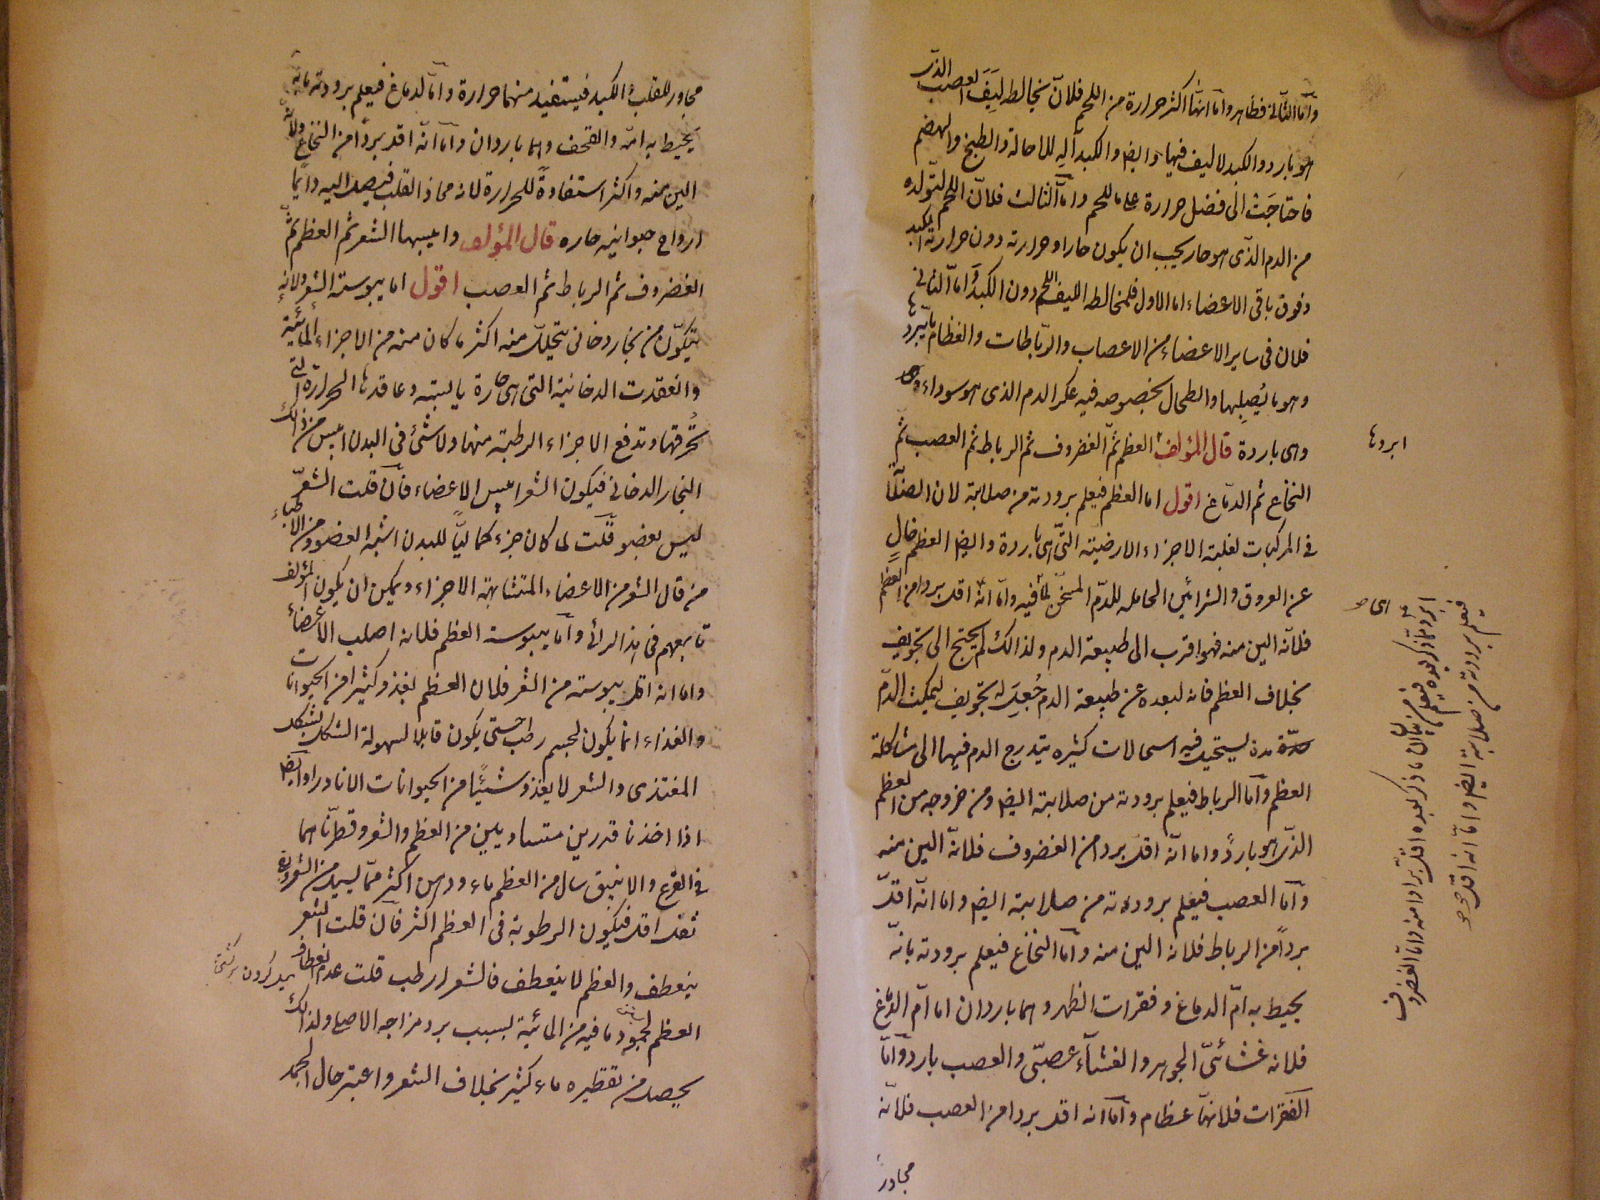 واما الثانى فظاهر واما انها اكثر حرارة من اللحم فلان يخالطه ليف العصب الذى
هو بارد والكبد لا ليف فيها وايض والكبد آلة للاحالة والطبخ والهضم
فاحتاجت الى فضل حرارة على ما للحم واما الثالث فلان اللحم لتولده
من الدم الذى هو حار يجب ان يكون حارا وحرارته دون حرارة الكبد
وفوق باقى الاعضاء اما الاول فلمخالطه الليف اللحم دون الكبد واما الثانى
فلان فى ساير الاعضاء من الاعصاب والرباطات والعظام ما يبردها
وهو ما يصلبها والطحال بخصوصه فيه عكر الدم الذى هو سوداء
وهى باردة قال المؤلف العظم ثم الغضروف ثم الرباط ثم العصب ثم
النخاع ثم الدماغ اقول اما العظم فيعلم برودته من صلابته لان الصلابة
فى المركبات لغلبة الاجزاء الارضية التى هى باردة وايض العظم خال
عن العروق والشرائين الحامله للدم المسخن لما فيه واما انه اقل بردا من العظم
فلانه الين منه فهو اقرب الى طبيعة الدم ولذالك لم يحتج الى تجويف
بخلاف العظم فانه لبعده عن طبيعة الدم جعل له تجويف ليمكث الدم
مدة ليستحيل فيه استحالات كثيره يتدرج الدم فيها الى مشاكلة
العظم واما الرباط فيعلم برودته من صلابته ايض ومن خروجه من العظم
الذى هو بارد واما انه اقل بردا من الغضروف فلانه الين منه
واما العصب فيعلم برودته من صلابته ايض واما انه اقل
بردا من الرباط فلانه الين منه واما النخاع فيعلم برودته بانه
يحيط به ام الدماغ وفقرات الظهر وهما باردان اما ام الدماغ
فلانه غشائى الجوهر والغشاء عصبى والعصب بارد واما
الفقرات فلانها عظام واما انه اقل بردا من العصب فلانه
مجاور
ابردها
فيعلم برودته من صلابته ايض واما انه اقل
مجاور للقلب والكبد فيستفيد منهما حرارة واما الدماغ فيعلم برودته بانه
يحيط به امه والقحف وهما باردان واما انه اقل بردا من النخاع ولانه
الين منه واكثر استفادة للحرارة لانه محاذ القلب فيصل اليه دائما
ارواح حيوانيه حاره قال المؤلف وايبسها الشعر ثم العظم ثم
الغضروف ثم الرباط ثم العصب اقول اما يبوسته الشعر ولانه
يتكون من بخار دخانى يتحلل منه اكثر ما كان منه من الاجزاء المائية
وانعقدت الدخانية التى هى حارة يابسة وعاقدها الحرارة التى
تحرقها وتدفع الاجزاء الرطبة منها ولا شئ فى البدن ايبس من ذالك
البخار الدخانى فيكون الشعر ايبس الاعضاء فان قلت الشعر
ليس بعضو قلت لما كان جزء كماليا للبدن اشبه العضو ومن الاطباء
من قال الشعر من الاعضاء المتشابهة الاجزاء ويمكن ان يكون المؤلف
تابعهم فى هذا الرأى واما يبوسة العظم فلانه اصلب الاعضاء
واما انه اقل يبوسته من الشعر فلان العظم يغذو كثيرا من الحيوانات
والغذاء انما يكون لجسم رطب حتى يكون قابلا لسهولة التشكل بشكل
المغتذى والشعر لا يغذو شيئا من الحيوانات الا نادرا وايض
اذا اخذنا قدرين متساويين من العظم والشعر وقطرناهما
فى القرع والانبيق سال من العظم ماء ودهن اكثر مما يسيل من الشعر
ثقل اقل فيكون الرطوبة فى العظم اكثر فان قلت الشعر
ينعطف والعظم لا ينعطف فالشعر ارطب قلت عدم انعطاف
العظم لجمود ما فيه من المائية بسبب برد مزاجه الاصلى ولذالك
يحصل من تقطيره ماء كثير بخلاف الشعر واعتبر حال الجمد